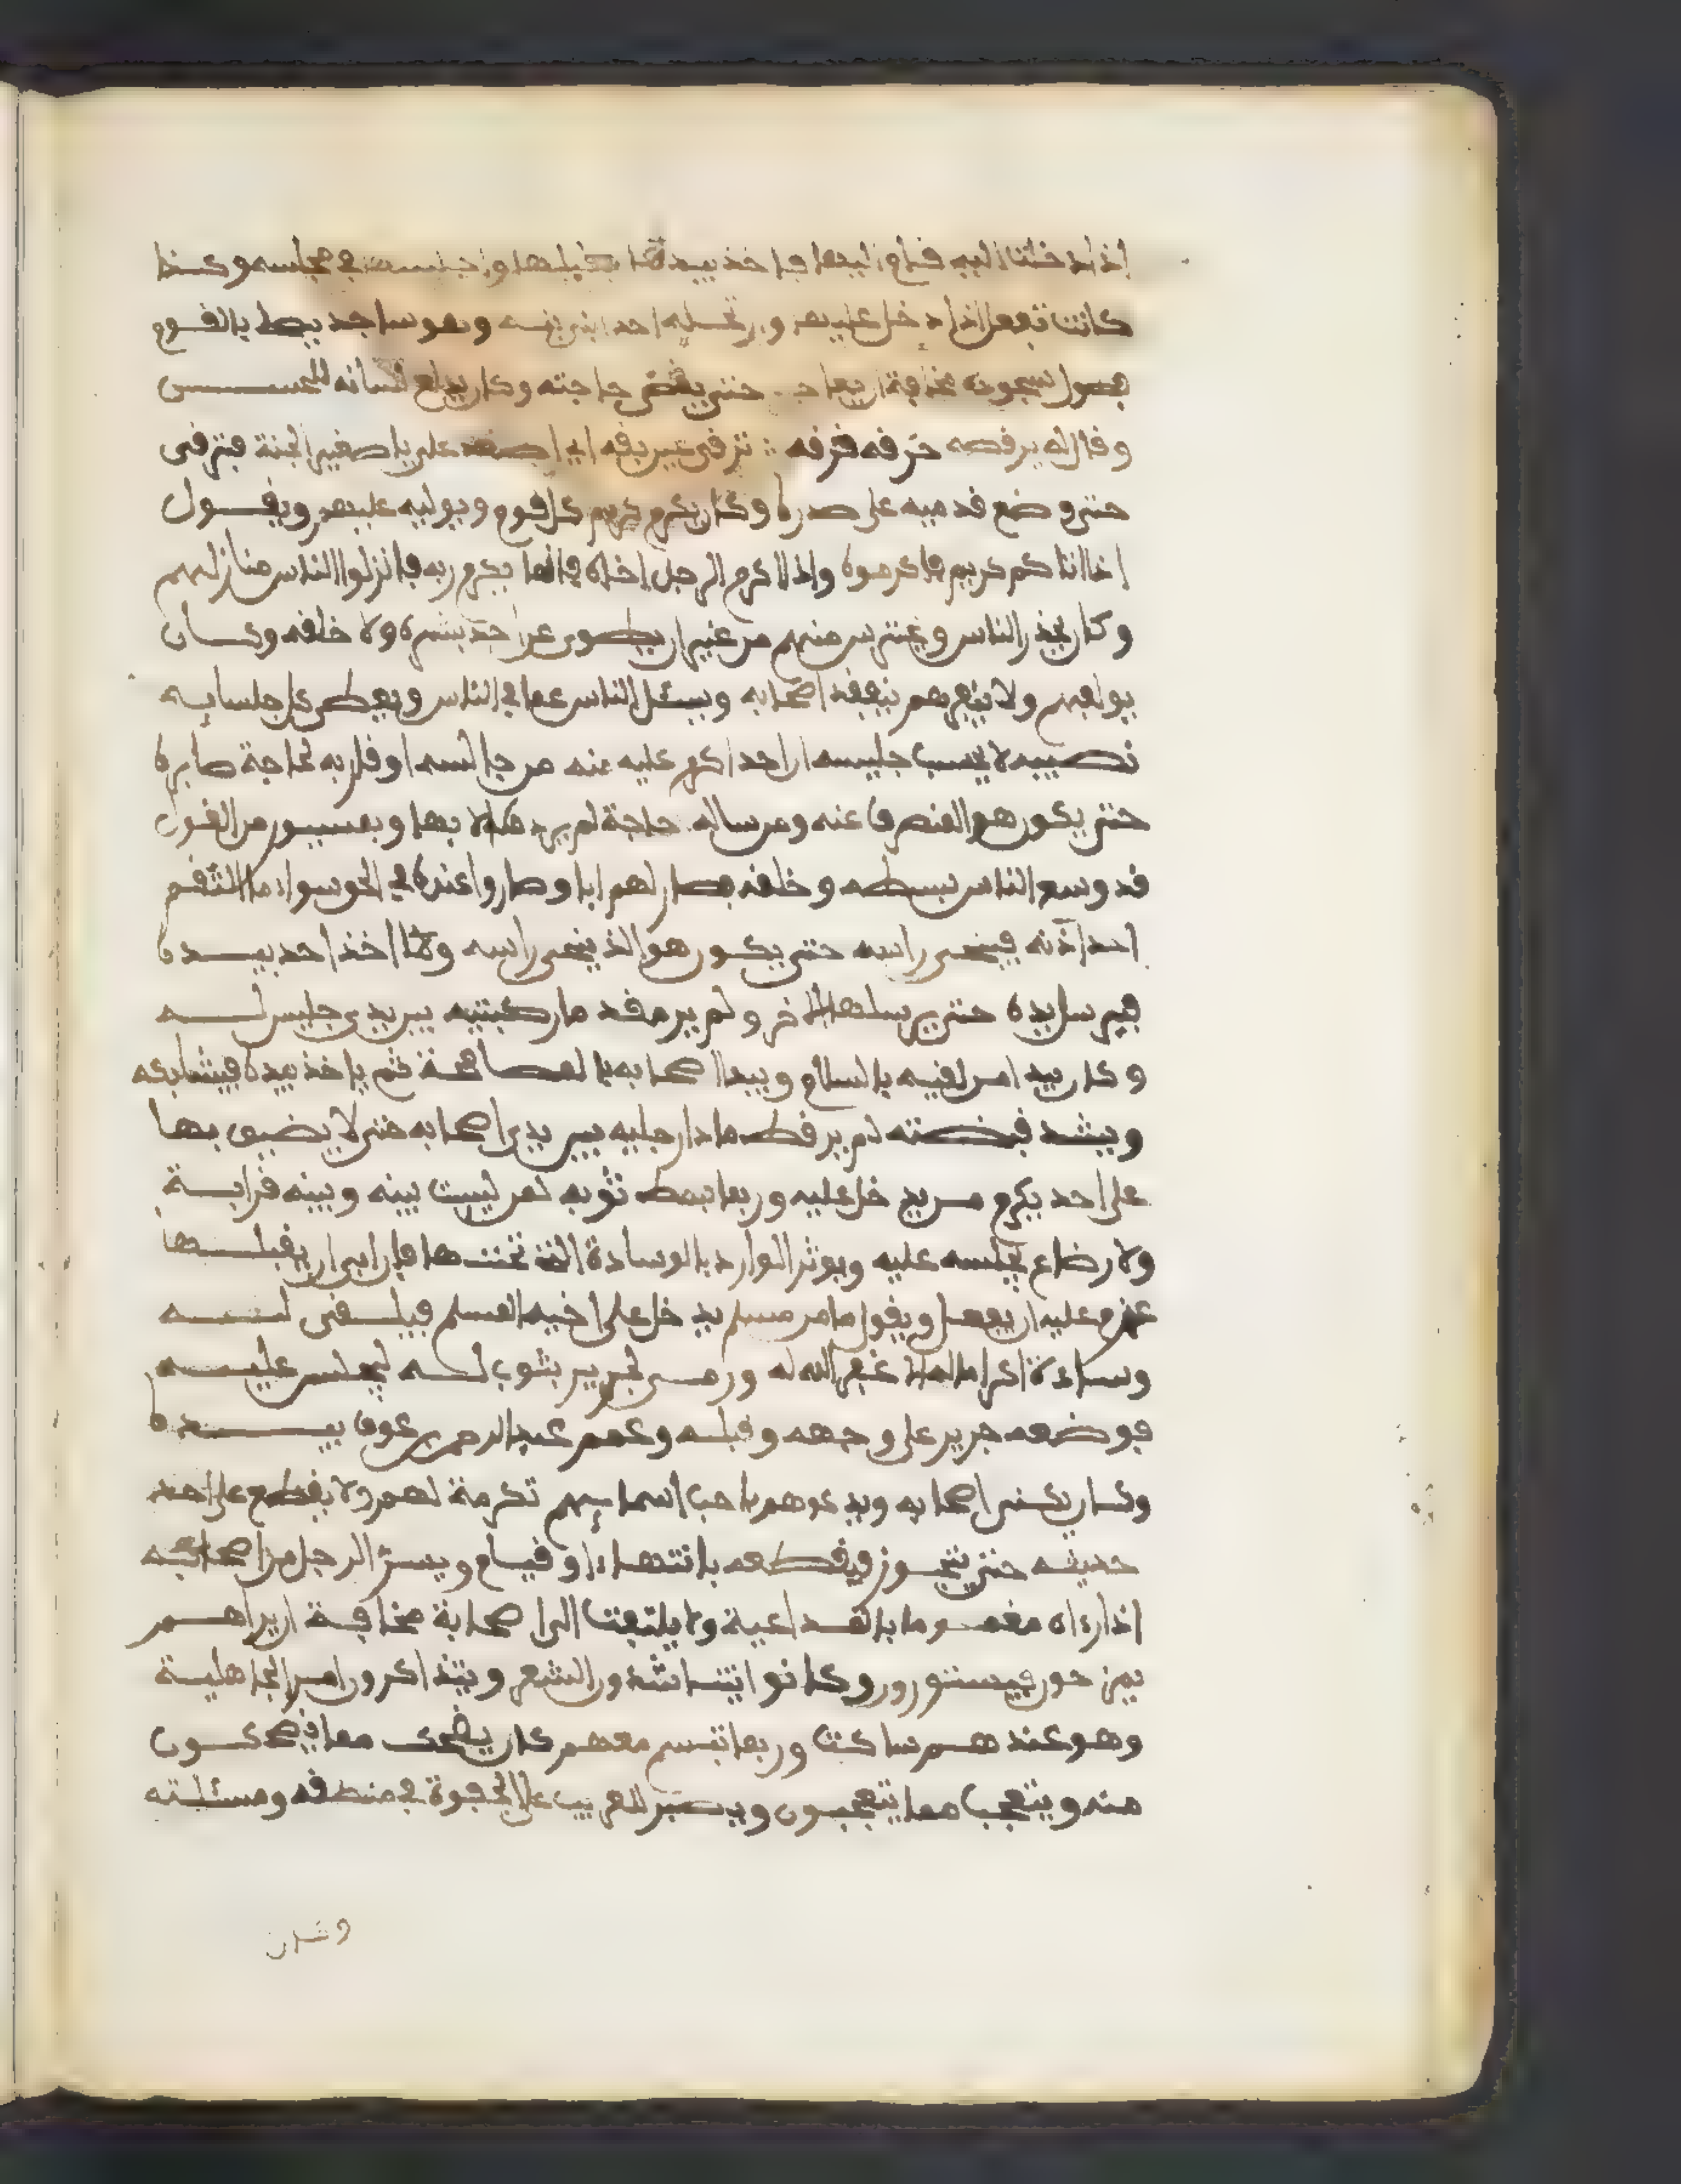 إذا دخلت إليه قام إليها فأخذ بيدها فقبلها وأجلسها في مجلسه وكذا
كانت تفعل إذا دخل عليها وارتحله أحد ابني بنته وهو ساجد يصلي بالقوم
فطول سجوده مخافة حتى يقضي حاجته وكان يدلع لسانه للحسين
وقال له يرقصه حزقه حزقه ترق عين بقه أي اصعد علي يا صغير الجثة فترقى
حتى وضع قدميه على صدره وكان يكرم كريم كل قوم ويوليه عليهم ويقول
إذا أتاكم كريم فأكرموه وإذا أكرم الرجل أخاه فإنما يكرم ربه فأنزلوا الناس منازلهم
وكان يحذر الناس ويحترس منهم من غير أن يطوي عن أحد بشره ولا خلقه وكان
يؤلفهم ولا ينفرهم يتفقد أصحابه ويسئل الناس عما في الناس ويعطي كل جلسايه
نصيبه لا يحسب جليسه أن أحدا أكرم عليه منه من جالسه أو قاربه لحاجة صابره
حتى يكون هو المنصرف عنه ومن ساله حاجة لم يرده إلا بها وبميسور من القول
قد وسع الناس بسطه وخلقه فصار لهم أبا وصاروا عنده في الحق سواء ما التقم
أحد أذنه فينحي رأسه حتى يكون هو الذي ينحي رأسه وما أخذ أحد بيده
فيرسل يده حتى يرسلها الآخر ولم ير مقدما ركبتيه بين يدي جليس له
وكان يبدأ من لقيه بالسلام ويبدأ أصحابه بالمصافحة ثم يأخذ بيده فيشابكه
ويشد قبضته لم ير قط مادا رجليه بين يدي أصحابه حتى لا يضيق بها
على أحد يكرم من يدخل عليه وربما بسط ثوبه لمن ليست بينه وبينه قرابة
ولا رضاع يجلسه عليه ويوثر الوارد بالوسادة التي تحتها فإن أبى أن يقبلها
عزم عليه أن يفعل ويقول ما من مسلم يدخل على أخيه المسلم فيلقي له
وسادة إكراما له إلا غفر الله له ورمى لجرير بثوب له ليجلس عليه
فوضعه جرير على وجهه وقبله وعمم عبد الرحمن بن عوف بيده
وكان يكني أصحابه ويدعوهم بأحب أسمائهم تكرمة لهم ولا يقطع على أحد
حديثه حتى يتجوز فيقطعه بانتهاء أو قيام ويسر الرجل من أصحابه
إذا رءاه مغموما بالمداعبة ولا يلتفت إلى أصحابه مخافة أن يراهم
يمزحون فيستورون وكانوا يتناشدون الشعر ويتذاكرون أمر الجاهلية
وهو عندهم ساكت وربما تبسم معهم كان يضحك مما يضحكون
منه ويتعجب مما يتعجبون ويصبر للغريب على الجفوة في منطقه ومسئلته